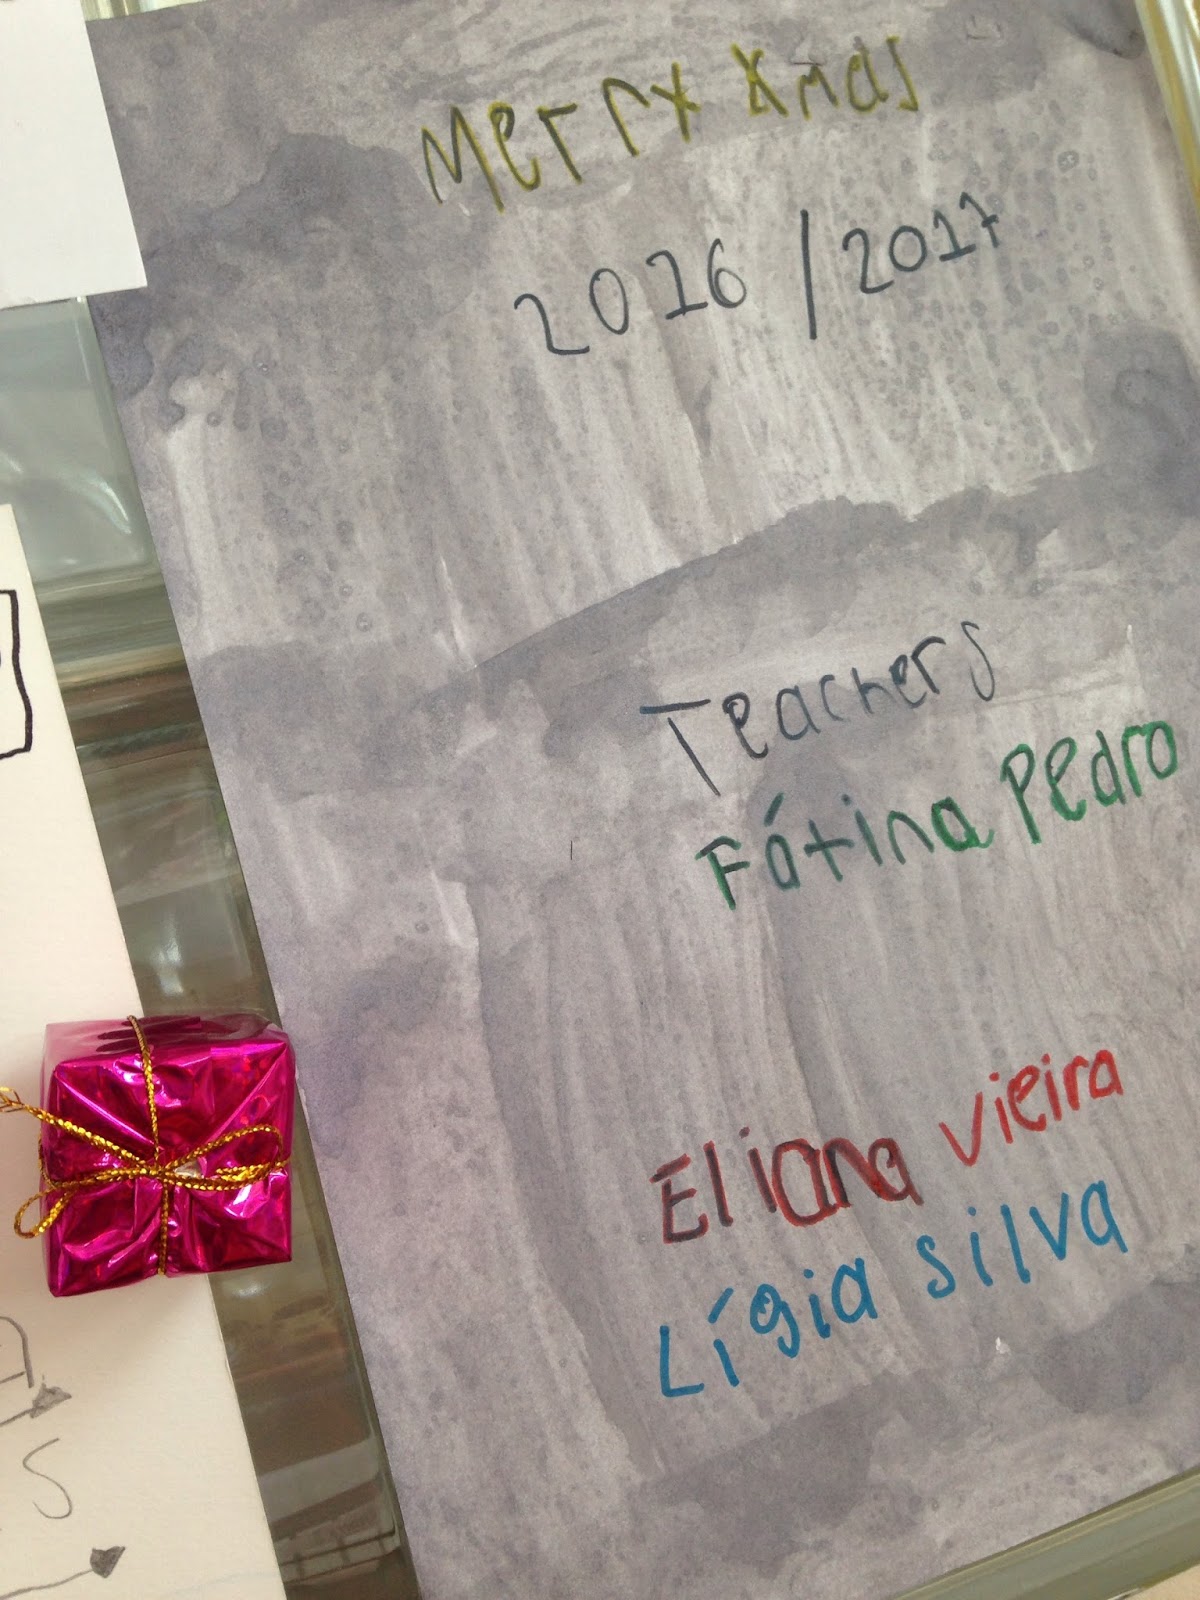 Merry Xmas
2016 / 2017
Teachers
Fátina Pedro
Eliana Vieira
Lígia Silva
S